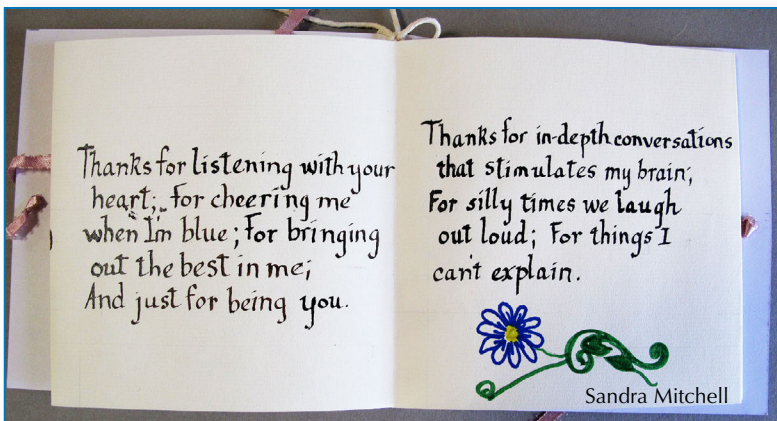 Thanks for listening with your
heart; For cheering me
when I'm blue; For bringing
out the best in me;
And just for being you.
Thanks for in-depth conversations
that stimulates my brain;
For silly times we laugh
out loud; For things I
can't explain.
Sandra Mitchell